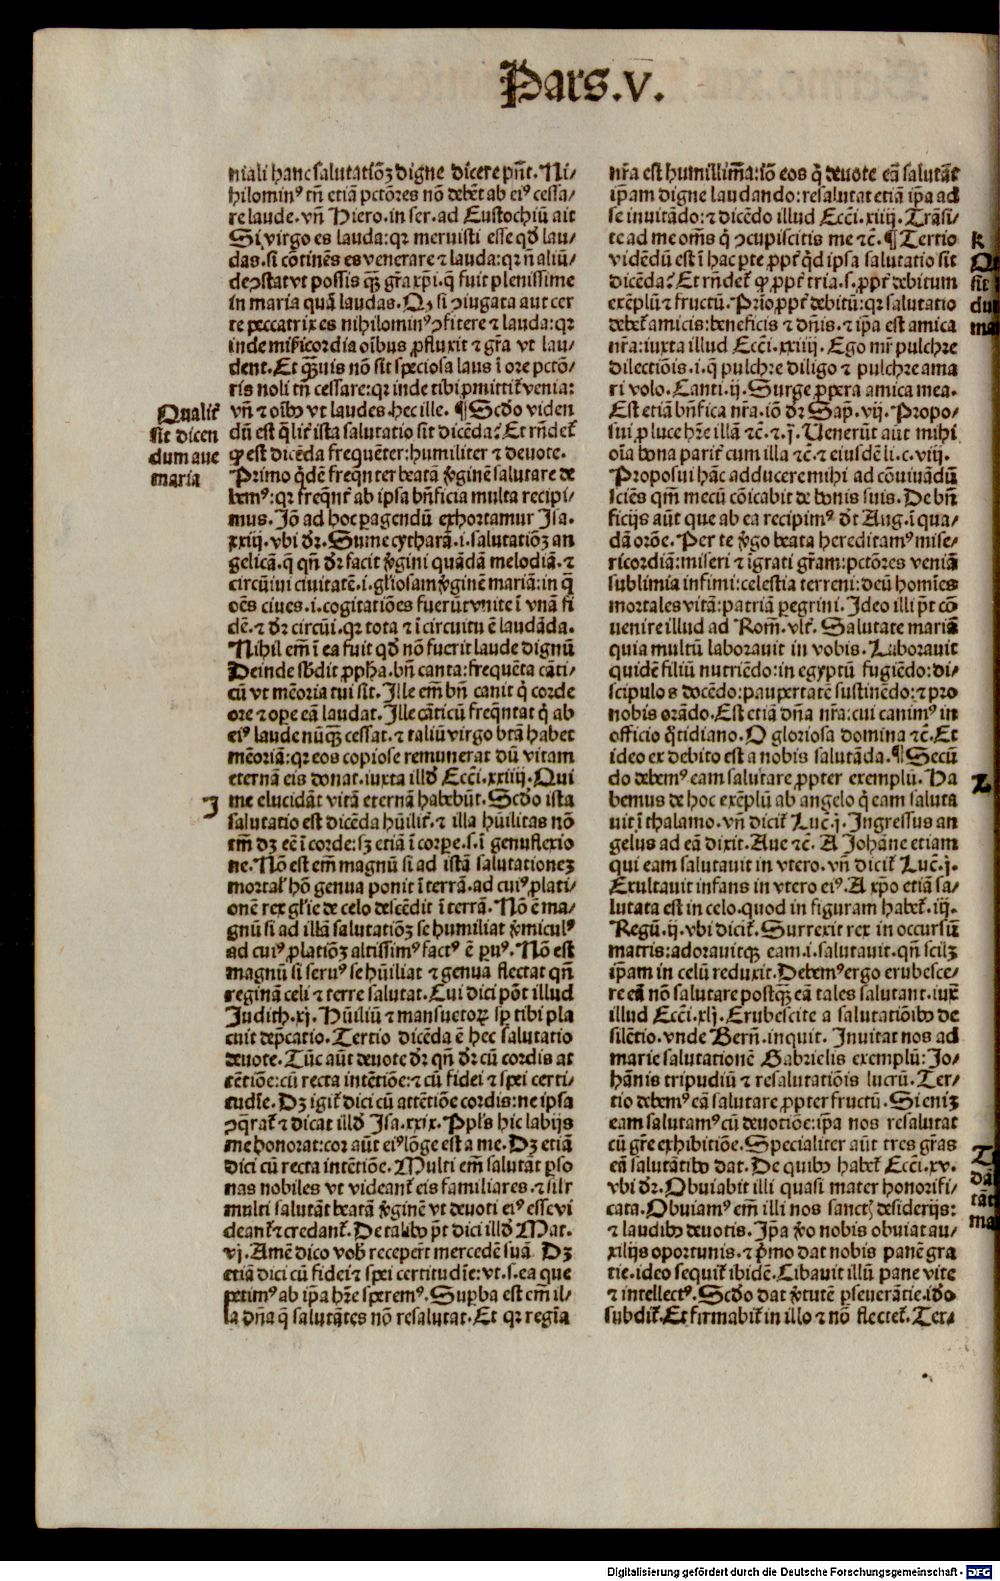 Pars.V.
niali hanc salutatiōꝫ digne dicere pn̄t. Ni-
hilominꝰ tn̄ etiā pctōres nō debēt ab eiꝰ cessa-
re laude. vn̄ Hiero. in ser. ad Eustochiū ait
Si virgo es lauda: qꝛ meruisti esse qd̄ lau-
das. si cōtinēs es venerare ⁊ lauda: qꝛ n̄ aliū-
de ↄstat vt possis qꝫ̄ gr̄a xp̄i. q̄ fuit plenissime
in maria quā laudas. Qꝫ si ↄiugata aut cer
te peccatrix es nihilominꝰ ↄfitere ⁊ lauda: qꝛ
inde mīcordia oībus ꝓfluxit ⁊ gr̄a vt lau-
dent. Et qꝫ̄uis nō sit speciosa laus ī ore pctō-
ris noli tn̄ cessare: qꝛ inde tibi ꝓmittit᷑ venia:
vn̄ ⁊ oībꝰ vt laudes. hec ille. ¶ Scd̄o viden
dū est q̄lit᷑ ista salutatio sit dicēda? Et rn̄det᷑
ꝙ est dicēda frequēter: humiliter ⁊ deuote.
Primo q̄dē freqn̄ter beatā v̄ginē salutare de
bemꝰ: qꝛ freqn̄t᷑ ab ipsa bn̄ficia multa recipi-
mus. Iō ad hoc ꝑagendū exhortamur Isa.
xxiij. vbi dr̄. Sume cytharā. i. salutatiōꝫ an
gelicā. q̄ qn̄ dr̄ facit v̄gini quādā melodiā. ⁊
circūiui ciuitatē. i. gl̄iosam v̄ginē mariā: in q̄
oēs ciues. i. cogitatiōes fuerūt vnite ī vnā fi
dē. ⁊ dr̄ circūi. qꝛ tota ⁊ ī circuitu ē laudāda.
Nihil em̄ ī ea fuit qd̄ nō fuerit laude dignū
Deinde sb̄dit ꝓpha. bn̄ canta: frequēta cāti-
cū vt mēoria tui sit. Ille em̄ bn̄ canit q̄ corde
ore ⁊ oꝑe eā laudat. Ille cāticū freqn̄tat q̄ ab
eiꝰ laude nūqꝫ̄ cessat. ⁊ taliū virgo btā habet
mēoriā: qꝛ eos copiose remunerat dū vitam
eternā eis donat. iuxta ill̄d Ecci. xxiiij. Qui
me elucidāt vitā eternā habebūt. Scd̄o ista
salutatio est dicēda hūilit᷑. ⁊ illa hūilitas nō
tm̄ dꝫ eē ī corde: sꝫ etiā ī corꝑe. s. ī genuflexio
ne. Nō est em̄ magnū si ad istā salutationeꝫ
mortal̄ hō genua ponit ī terrā. ad cuiꝰ ꝓlati-
onē rex gl̄ie de celo descēdit ī terrā. Nō ē ma-
gnū si ad illā salutatiōꝫ se humiliat v̄miculꝰ
ad cuiꝰ ꝓlatiōꝫ altissimꝰ factꝰ ē ꝑuꝰ. Nō est
magnū si seruꝰ se hūiliat ⁊ genua flectat qn̄
reginā celi ⁊ terre salutat. Cui dici pōt illud
Judith. xj. Hūiliū ⁊ mansuetoꝝ sp̄ tibi pla
cuit dep̄catio. Tertio dicēda ē hec salutatio
deuote. Tūc aūt deuote dr̄ qn̄ dr̄ cū cordis at
tētiōe: cū recta intētiōe: ⁊ cū fidei ⁊ spei certi-
tudīe. Dꝫ igit᷑ dici cū attētiōe cordis: ne ipsa
ↄq̄rat᷑ ⁊ dicat ill̄d Isa. xxix. Ppl̄s hic labijs
me honorat: cor aūt eiꝰ lōge est a me. Dꝫ etiā
dici cū recta intētiōe. Multi em̄ salutāt ꝑso
nas nobiles vt videant᷑ eis familiares. ⁊ sil̄r
multi salutāt beatā v̄ginē vt deuoti eiꝰ esse vi
deant᷑ ⁊ credant᷑. De talibꝰ pt̄ dici ill̄d Mat.
vj. Amē dico vob̄ receperūt mercedē suā. Dꝫ
etiā dici cū fidei ⁊ spei certitudīe: vt. s. ea que
petimꝰ ab ip̄a hr̄e speremꝰ. Suꝑba est em̄ il-
la dn̄a q̄ salutātes nō resalutat. Et qꝛ regīa
Qualit᷑
sit dicen
dum aue
maria
J
nr̄a est humillima: iō eos q̄ deuote eā salutāt
ip̄am digne laudando: resalutat etiā ip̄a ad
se inuitādo: ⁊ dicēdo illud Ecci. xiiij. Trāsi-
te ad me om̄s q̄ ↄcupiscitis me ⁊c̄. ¶ Tertio
vidēdū est ī hac ꝑte ꝓpt᷑ qd̄ ipsa salutatio sit
dicēda? Et rn̄det᷑ ꝙ ꝓpt᷑ tria. s. ꝓpt᷑ debitum
exēplū ⁊ fructū. Prīo ꝓpt᷑ debitū: qꝛ salutatio
debet᷑ amicis: beneficis ⁊ dn̄is. ⁊ ip̄a est amica
nr̄a: iuxta illud Ecci. xxiiij. Ego mr̄ pulchre
dilectiōis. i. q̄ pulchre diligo ⁊ pulchre ama
ri volo. Canti. ij. Surge ꝓpera amica mea.
Est etiā bn̄fica nr̄a. iō dr̄ Sap̄. vij. Propo-
sui ꝓ luce hr̄e illā ⁊c̄. ⁊ .j. Uenerūt aūt mihi
oīa bona parit᷑ cum illa ⁊c̄. ⁊ eiusdē li. c. viij.
Proposui hāc adducere mihi ad cōuiuādū
sciēs qm̄ mecū cōicabit de bonis suis. De bn̄
ficijs aūt que ab ea recipimꝰ dt̄ Aug. ī qua-
dā orōe. Per te v̄go beata hereditamꝰ mise-
ricordiā: miseri ⁊ īgrati gr̄am: pctōres veniā
sublimia infimi: celestia terreni: deū homīes
mortales vitā: patriā ꝑegrini. Ideo illi pt̄ cō
uenire illud ad Rom̄. vlt᷑. Salutate mariā
quia multū laborauit in vobis. Laborauit
quidē filiū nutriēdo: in egyptū fugiēdo: di-
scipulos docēdo: paupertatē sustinēdo: ⁊ pro
nobis orādo. Est etiā dn̄a nr̄a: cui canimꝰ in
officio q̄tidiano. O gloriosa domina ⁊c̄. Et
ideo ex debito est a nobis salutāda. ¶ Secū
do debemꝰ eam salutare ꝓpter exemplū. Ha
bemus de hoc exēplū ab angelo q̄ eam saluta
uit ī thalamo. vn̄ dicit᷑ Luc̄. j. Ingressus an
gelus ad eā dixit. Aue ⁊c̄. A Johāne etiam
qui eam salutauit in vtero. vn̄ dicit᷑ Luc̄. j.
Exultauit infans in vtero eiꝰ. A xp̄o etiā sa-
lutata est in celo. quod in figuram habet᷑. iij.
Regū. ij. vbi dicit᷑. Surrexit rex in occursū
matris: adorauitqꝫ eam. i. salutauit. qn̄ scilꝫ
ip̄am in celū reduxit. Debemꝰ ergo erubesce-
re eā nō salutare postqꝫ̄ eā tales salutant. iux̄
illud Ecci. xlj. Erubescite a salutatiōibꝰ de
silētio. vnde Bern̄. inquit. Inuitat nos ad
marie salutationē Gabrielis exemplū: Jo-
hānis tripudiū ⁊ resalutatiōis lucrū. Ter-
tio debemꝰ eā salutare ꝓpter fructū. Si eniꝫ
eam salutamꝰ cū deuotiōe: ip̄a nos resalutat
cū gr̄e exhibitiōe. Specialiter aūt tres gr̄as
eā salutātibꝰ dat. De quibꝰ habet᷑ Ecci. xv.
vbi dr̄. Obuiabit illi quasi mater honorifi-
cata. Obuiamꝰ em̄ illi nos sanctꝭ desiderijs:
⁊ laudibꝰ deuotis. Ip̄a v̄o nobis obuiat au-
xilijs oportunis. ⁊ p̄mo dat nobis panē gra
tie. ideo sequit᷑ ibidē. Cibauit illū pane vite
⁊ intellectꝰ. Scd̄o dat v̄tutē ꝑseuerātie. iō
subdit᷑. Et firmabit᷑ in illo ⁊ nō flectet᷑. Ter-
K
sit
Z
Digitalisierung gefördert durch die Deutsche Forschungsgemeinschaft - DFG